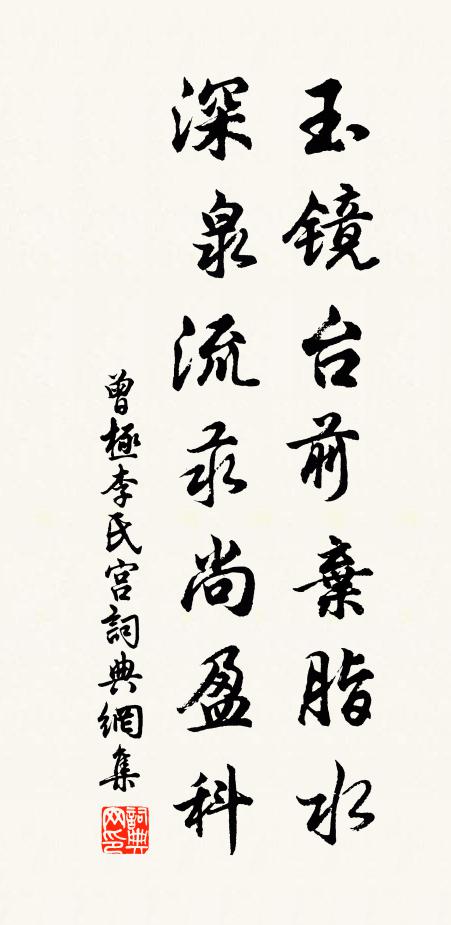 玉镜台前棄脂水
深泉流汞尚盈科
曾極李氏宫詞典網集
詞典网印